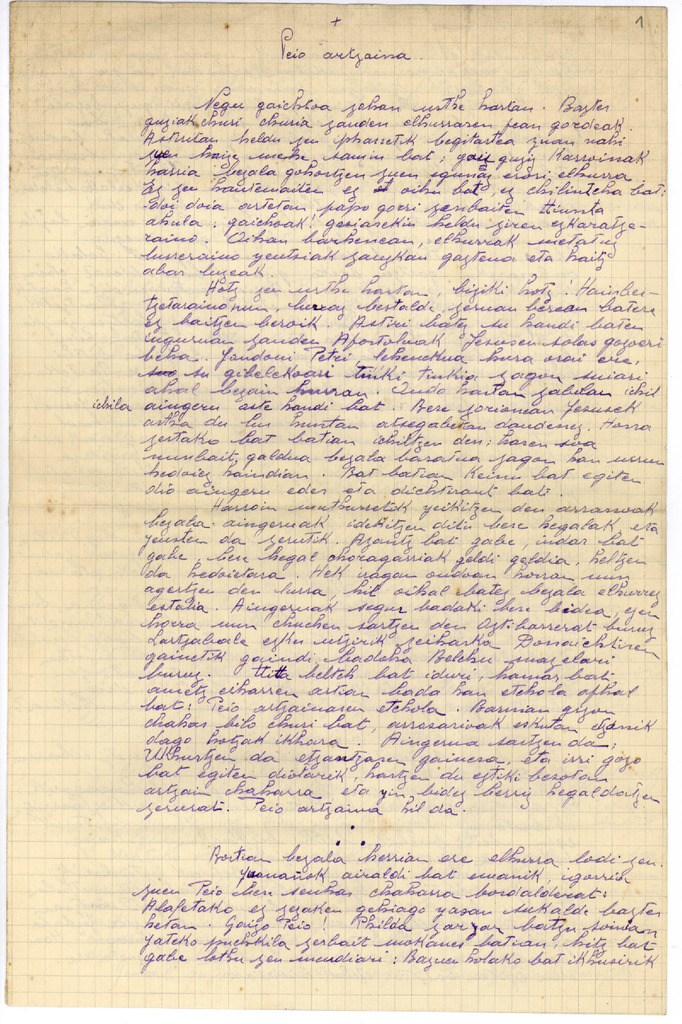 +
1
Peio artzaina.
Negu gaichtoa zohan urthe hartan. Bazter
guziak churi churia zauden elhurraren pean gordeak.
Astrutan heldu zen pharzetik begitartea zuan nahi
zuen haize mehe samin bat; gau guziz Karroinak
harria bezala gohortzen zuen egunaz erori elhurra.
Ez zen hautemaiten ez oihu bat, ez chilintcha bat;
doi doia artetan papo gorri zenbaiten tziunta
ahula: gaichoak! gosiarekin heldu ziren ezkaratze-
raino. Oihan barhenean, elhurrak metatu
lurreraino yeutsiak zauzkan gaztena eta haitz
abar luzeak.
Hotz zen urthe hartan, biziki hotz! Hainber-
tzetaraino nun, bestalde, zeruan berean batere
ez baitzen berorik. Astiri batez su handi baten
inguruan zauden Apostoluak Jesusen solas gozoeri
beha. Jondoni Petri, lehenekua hura orai ere,
su gibelekoari tinki tinkia zagon suiari
ahal bezain hurran. Ondo hartan zabilan ichil
ichila aingeru aste handi bat. Bere zorionian Jesusek
artha du lur huntan atsegabetan daudenez. Horra
zertako bat batian ichiltzen den; haren soa
nunbait galdua bezala baratua zagon han urrun
hedoiez haindian. Bat batian keinu bat egiten
dio aingeru eder eta dichtirant bati.
Harroin muthurretik yeikitzen den arranoak
bezala aingeruak idekitzen ditu bere hegalak, eta
yeusten da zerutik. Azantz bat gabe, indar bat
gabe, bere hegal choragarriak geldi geldia, heltzen
da hedoietara. Hek iragan ondoan horran nun
agertzen den lurra, hil oihal batez bezala elhurrez
estalia. Aingeruak segur badaki bere bidea, ezen
horra nun chuchen sartzen den Oztibarrerat buruz
Lartzabale ezker utzirik zeiharka Donaichtiren
gainetik gaindi, badoha Belchu mazelari
buruz. Titta beltch bat iduri, hamar bat
ametz eiharren artian bada han etchola aphal
bat: Peio artzainaren etchola. Barnian gizon
chahar bilo churi bat, arrosarioak eskutan etzanik
dago hotzak ikhara. Aingerua sartzen da;
Ukhurtzen da etzantzaren gainera, eta irri gozo
bat egiten diotarik, hartzen du eztiki besotan
artzain chaharra eta yin bidez berriz hegaldatzen
zerurat. Peio artzaina hil da.
Bortian bezala herrian ere elhurra lodi zen.
Yuanañok airaldi bat emanik, igorria
zuen Peio bere senhar chaharra bordalderat:
Alafetako ez zezaken gehiago yasan sukalde bazter
hetan. Gaizo Peio! Philda zarzar batzu soinian
yateko puchkila zerbait mokanes batian, hitz bat
gabe lothu zen mendiari: Bazuen holako bat ikhusirik